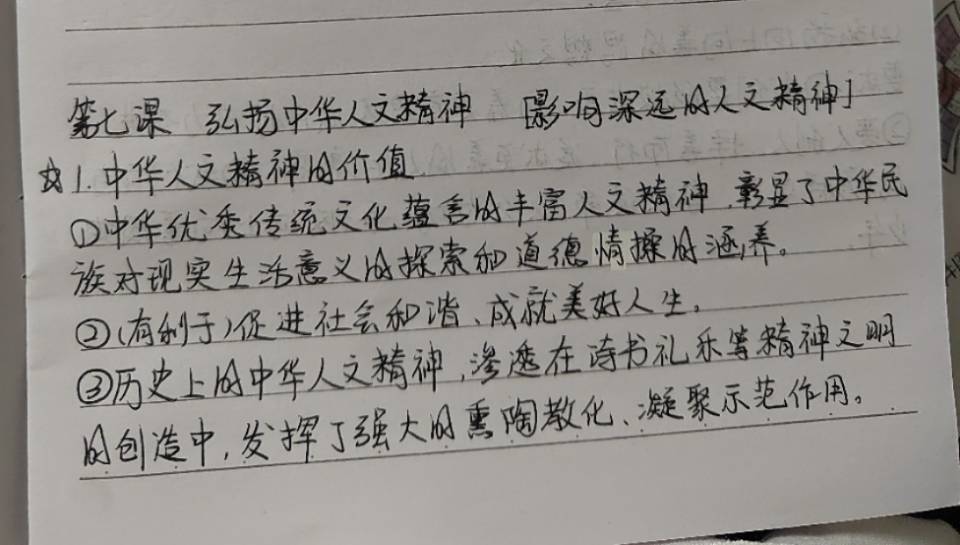 第七课 弘扬中华人文精神 [影响深远的人文精神]
☆1.中华人文精神的价值
①中华优秀传统文化蕴含的丰富人文精神,彰显了中华民
族对现实生活意义的探索和道德情操的涵养。
②(有利于)促进社会和谐、成就美好人生。
③历史上的中华人文精神,渗透在诗书礼乐等精神文明
的创造中,发挥了强大的熏陶教化、凝聚示范作用。